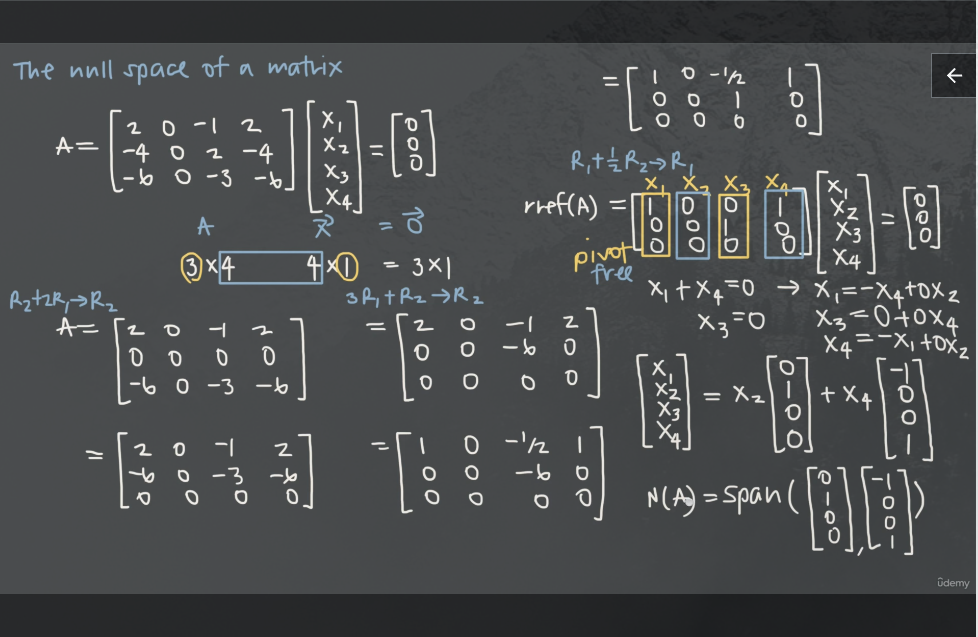 The null space of a matrix
A = [2 0 -1 2; -4 0 2 -4; -6 0 -3 -6] [x₁; x₂; x₃; x₄] = [0; 0; 0]
A x⃗ = 0⃗
3 × 4 4 × 1 = 3 × 1
R₂+2R₁→R₂
A = [2 0 -1 2; 0 0 0 0; -6 0 -3 -6]
= [2 0 -1 2; -6 0 -3 -6; 0 0 0 0]
3R₁+R₂→R₂
= [2 0 -1 2; 0 0 -6 0; 0 0 0 0]
= [1 0 -1/2 1; 0 0 -6 0; 0 0 0 0]
= [1 0 -1/2 1; 0 0 1 0; 0 0 0 0]
R₁+½R₂→R₁
x₁ x₂ x₃ x₄
rref(A) = [1 0 0 1; 0 0 1 0; 0 0 0 0] [x₁; x₂; x₃; x₄] = [0; 0; 0]
pivot
free
x₁+x₄=0 → x₁=-x₄+0x₂
x₃=0 x₃=0+0x₄
x₄=-x₁+0x₂
[x₁; x₂; x₃; x₄] = x₂ [0; 1; 0; 0] + x₄ [-1; 0; 0; 1]
N(A) = Span([0; 1; 0; 0], [-1; 0; 0; 1])
ûdemy